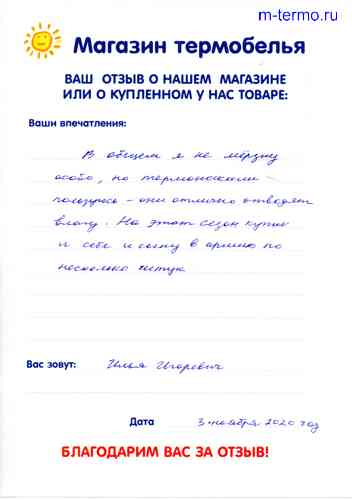 m-termo.ru
Магазин термобелья
ВАШ ОТЗЫВ О НАШЕМ МАГАЗИНЕ
ИЛИ О КУПЛЕННОМ У НАС ТОВАРЕ:
Ваши впечатления:
В общем я не мёрзну
особо, но термоноски -
- они отлично отводят
влагу. На этот сезон купил
и себе и сыну в армию по
несколько штук
Вас зовут: Илья Игоревич
Дата 3 ноября 2020 год
БЛАГОДАРИМ ВАС ЗА ОТЗЫВ!